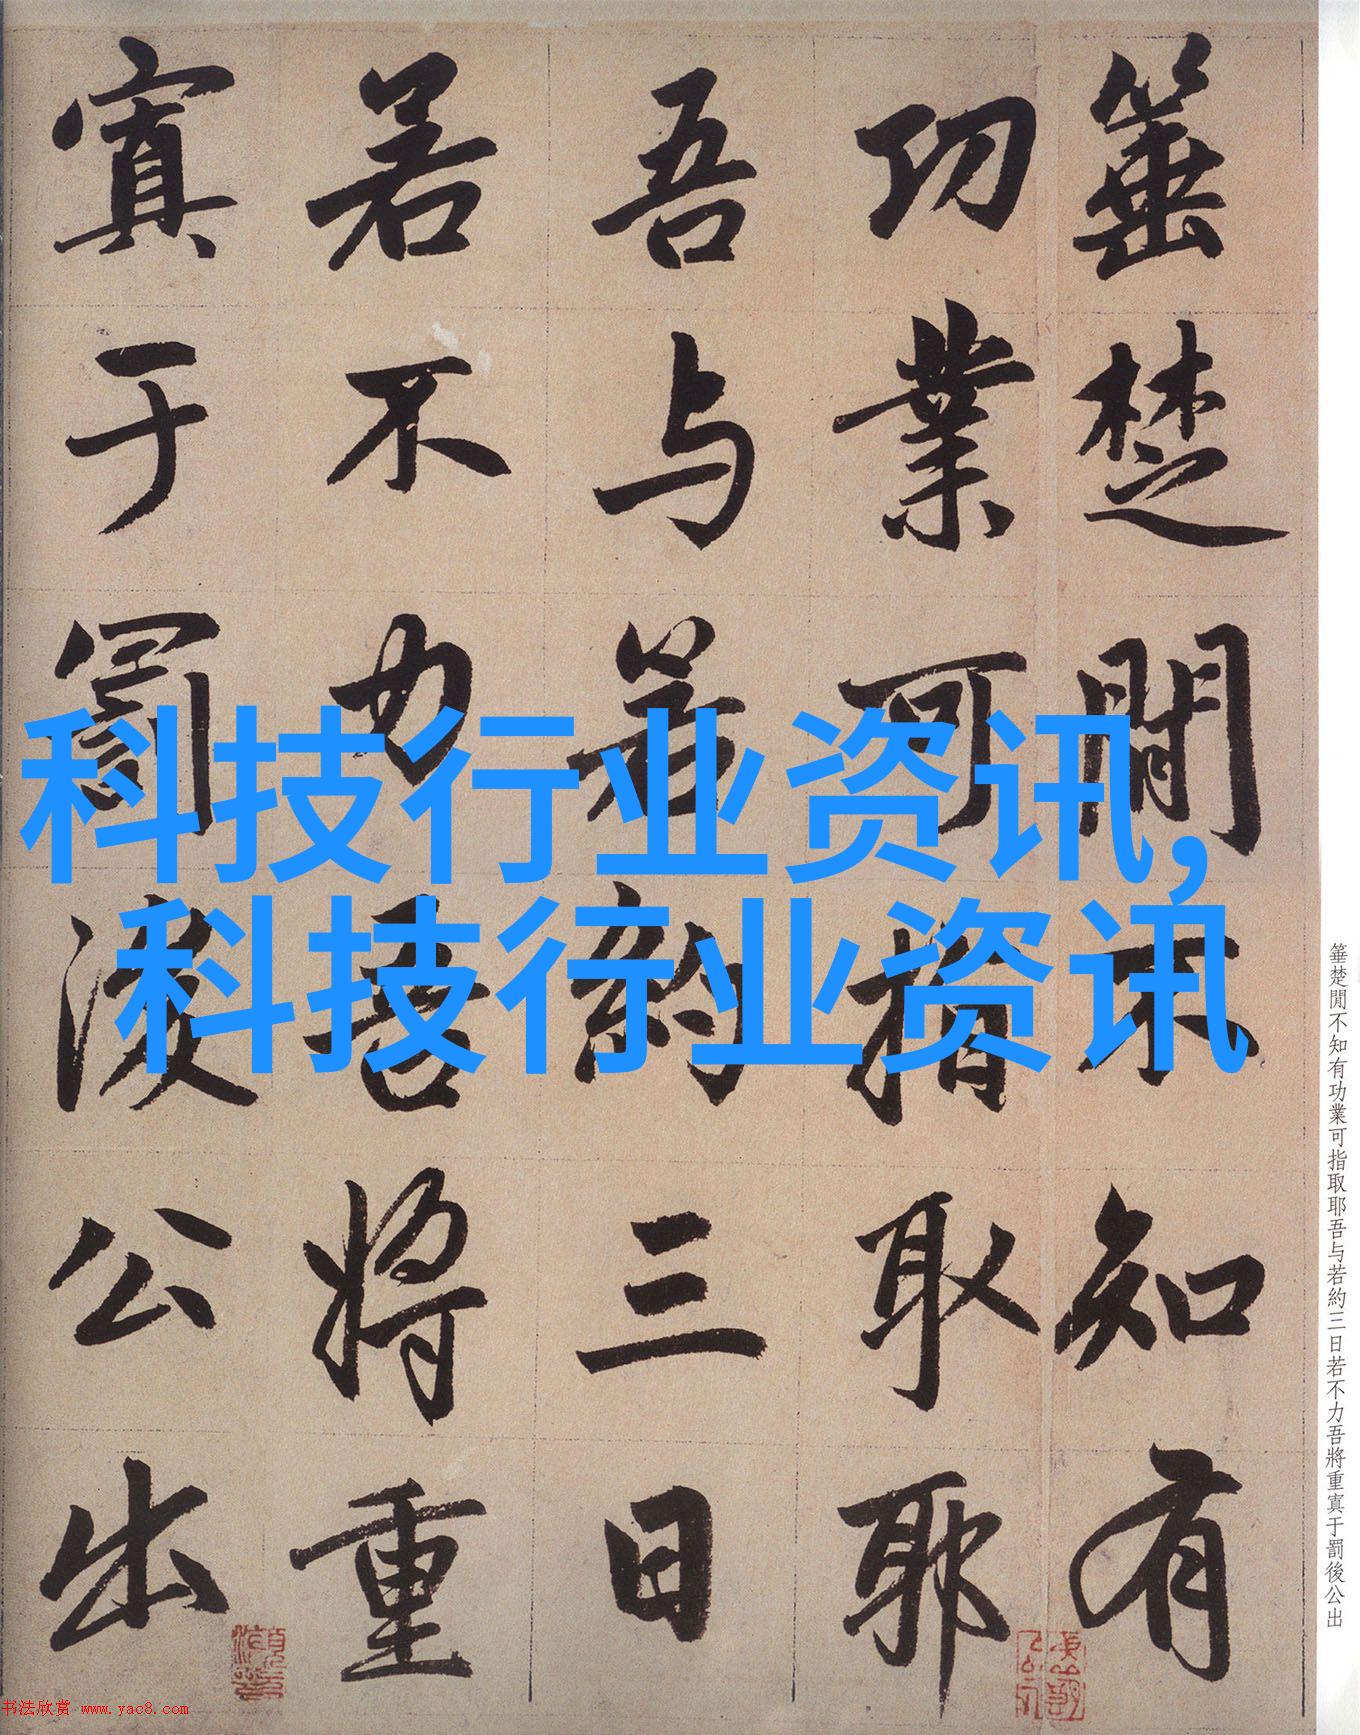 科技行业资讯,
科技行业资讯
箠楚間不知有
功業可指取耶
吾与若約三日
若不力吾將重
寘于罰後公出
箠楚閒不知有功業可指取耶吾与若約三日若不力吾將重寘于罰後公出
书法欣赏 www.yac8.com